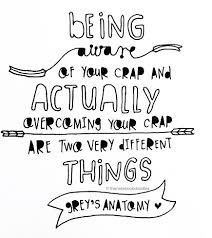 BEING
aware
OF YOUR CRAP AND
ACTUALLY
OVERCOMING YOUR CRAP
ARE TWO VERY DIFFERENT
THINGS
GREY'S ANATOMY ♥